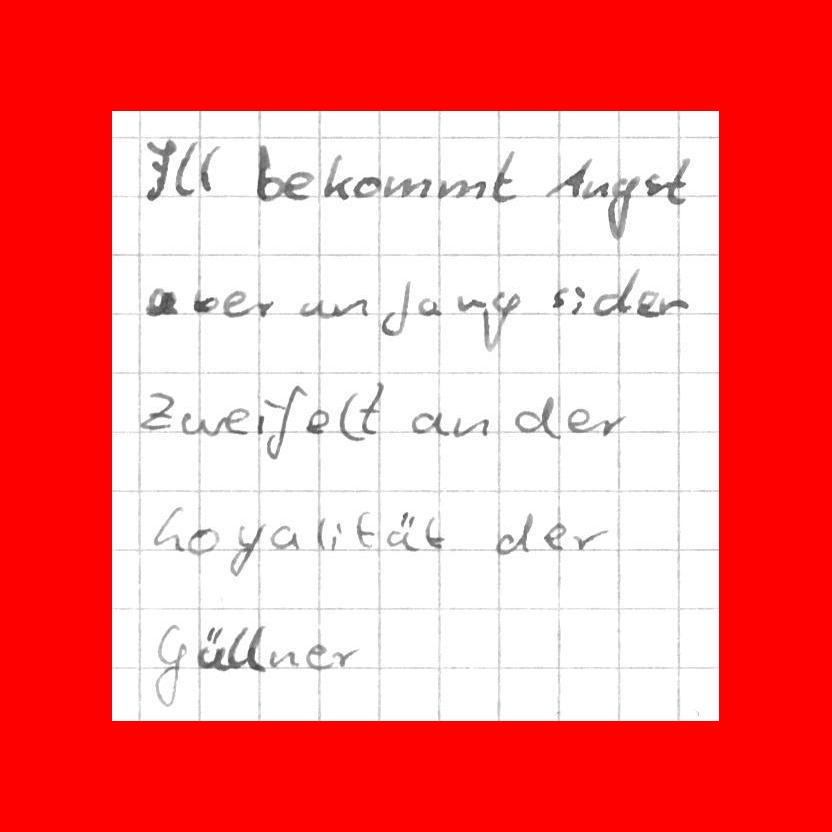 Ill bekommt Angst
aber anfang sider
zweifelt an der
Loyalität der
Güllner